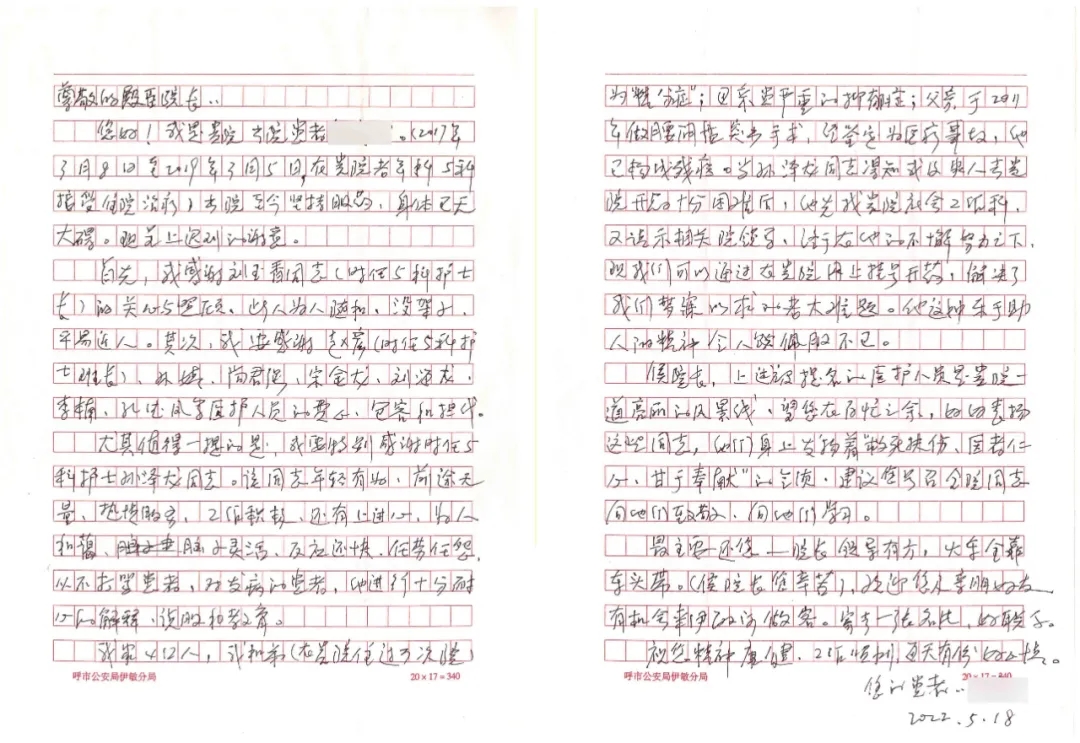 尊敬的殿臣院长：
您好！我是贵院出院患者。（2017年
3月8日至2019年3月5日，在贵院老年科5科
接受住院治疗）出院至今坚持服药，身体已无
大碍。现呈上迟到的谢意。
首先，我感谢刘玉香同志（时任5科护士
长）的关心与照顾。此人为人随和，没架子，
平易近人。其次，我要感谢（时任5科护
士班长）、尚君、宋金龙、刘海龙、
李楠、孔德凤等医护人员的费心、包容和担代。
尤其值得一提的是，我要特别感谢时任5
科护士孙泽龙同志。该同志年轻有为，前途无
量，热情服务，工作积极，还有上进心，为人
和蔼，脑子灵活，反应还快，任劳任怨，
从不打骂患者，对发病的患者，他进行十分耐
心的解释、说服和教育。
我家4口人，我和弟（在贵院住过3次院）
为"精分症"；母亲患严重的抑郁症；父亲于2011
年做腰间盘突出手术，经鉴定为医疗事故，他
已构成残疾。当孙泽龙同志得知我及家人去贵
院开药十分困难后，他先找贵院社会工作科，
又请示相关院领导，终于在他的不懈努力之下，
现我们可以通过在贵院网上挂号开药，解决了
我们梦寐以求的老大难题。他这种乐于助
人的精神令人钦佩不已。
侯院长，上述被提名的医护人员是贵院一
道亮丽的风景线，望您在百忙之余，的的表扬
这些同志，他们身上发扬着"救死扶伤、医者仁
心、甘于奉献"的金质，建议您号召全院同志
向他们致敬、向他们学习。
最主要还您——院长领导有方，火车全靠
车头带。（侯院长您辛苦），欢迎您及亲朋好友
有机会来伊敏河做客。寄去一张名片，好联系。
祝您精神康健、工作顺利，每天有份好心情。
呼市公安局伊敏分局 20×17=340
呼市公安局伊敏分局 20×17=340
您的患者：
2022.5.18